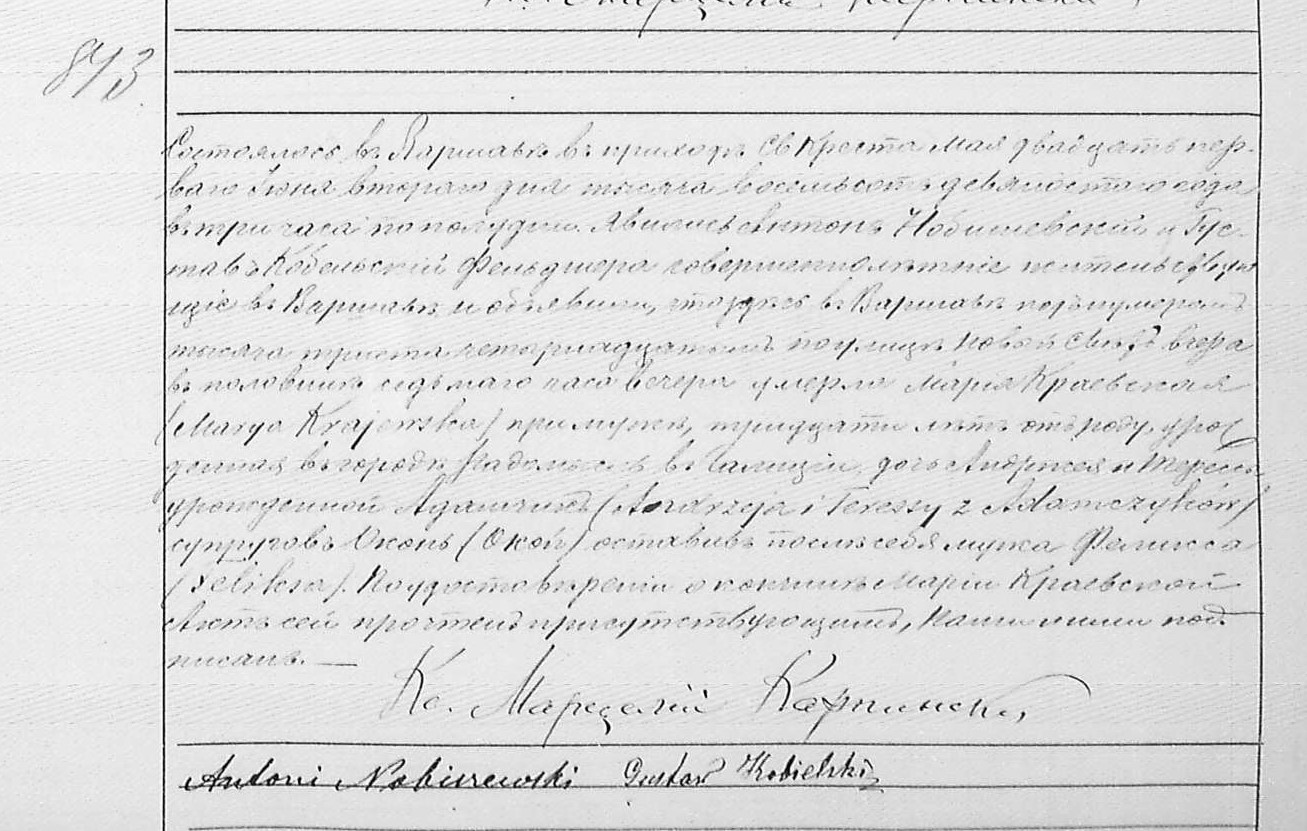 873
Состоялось въ Варшавѣ въ приходѣ Св Креста Мая двадцать пер-
ваго Іюня втораго дня тысяча восемьсотъ девяностаго года
въ три часа по полудни. Явились Антонъ Нобишевскій и Гус-
тавъ Кобельскій Фельдшера совершеннолѣтніе жительствую
щіе въ Варшавѣ и объявили, что здѣсь въ Варшавѣ подъ нумеромъ
тысяча триста четырнадцатымъ по улицѣ Новой Свѣтъ вчера
въ половинѣ седьмаго часа вечера умерла Марія Краевская
(Marya Krajewska) при мужѣ, тридцати лѣтъ отъ роду, уро
денная въ городѣ Радомыслѣ въ Галиціи, дочь Андржея и Терезы
урожденной Адамчикъ (Andrzeja i Teressy z Adamczyków)
супруговъ Оконь (Okoń) оставивъ послѣ себя мужа Феликса
(Feliksa). По удостовѣреніи о кончинѣ Маріи Краевской
Актъ сей прочтенъ присутствующимъ, Нами и ими под-
писанъ. —
Кс. Марцелій Карпинскі,
Antoni Nobiszewski Gustaw Kobielski